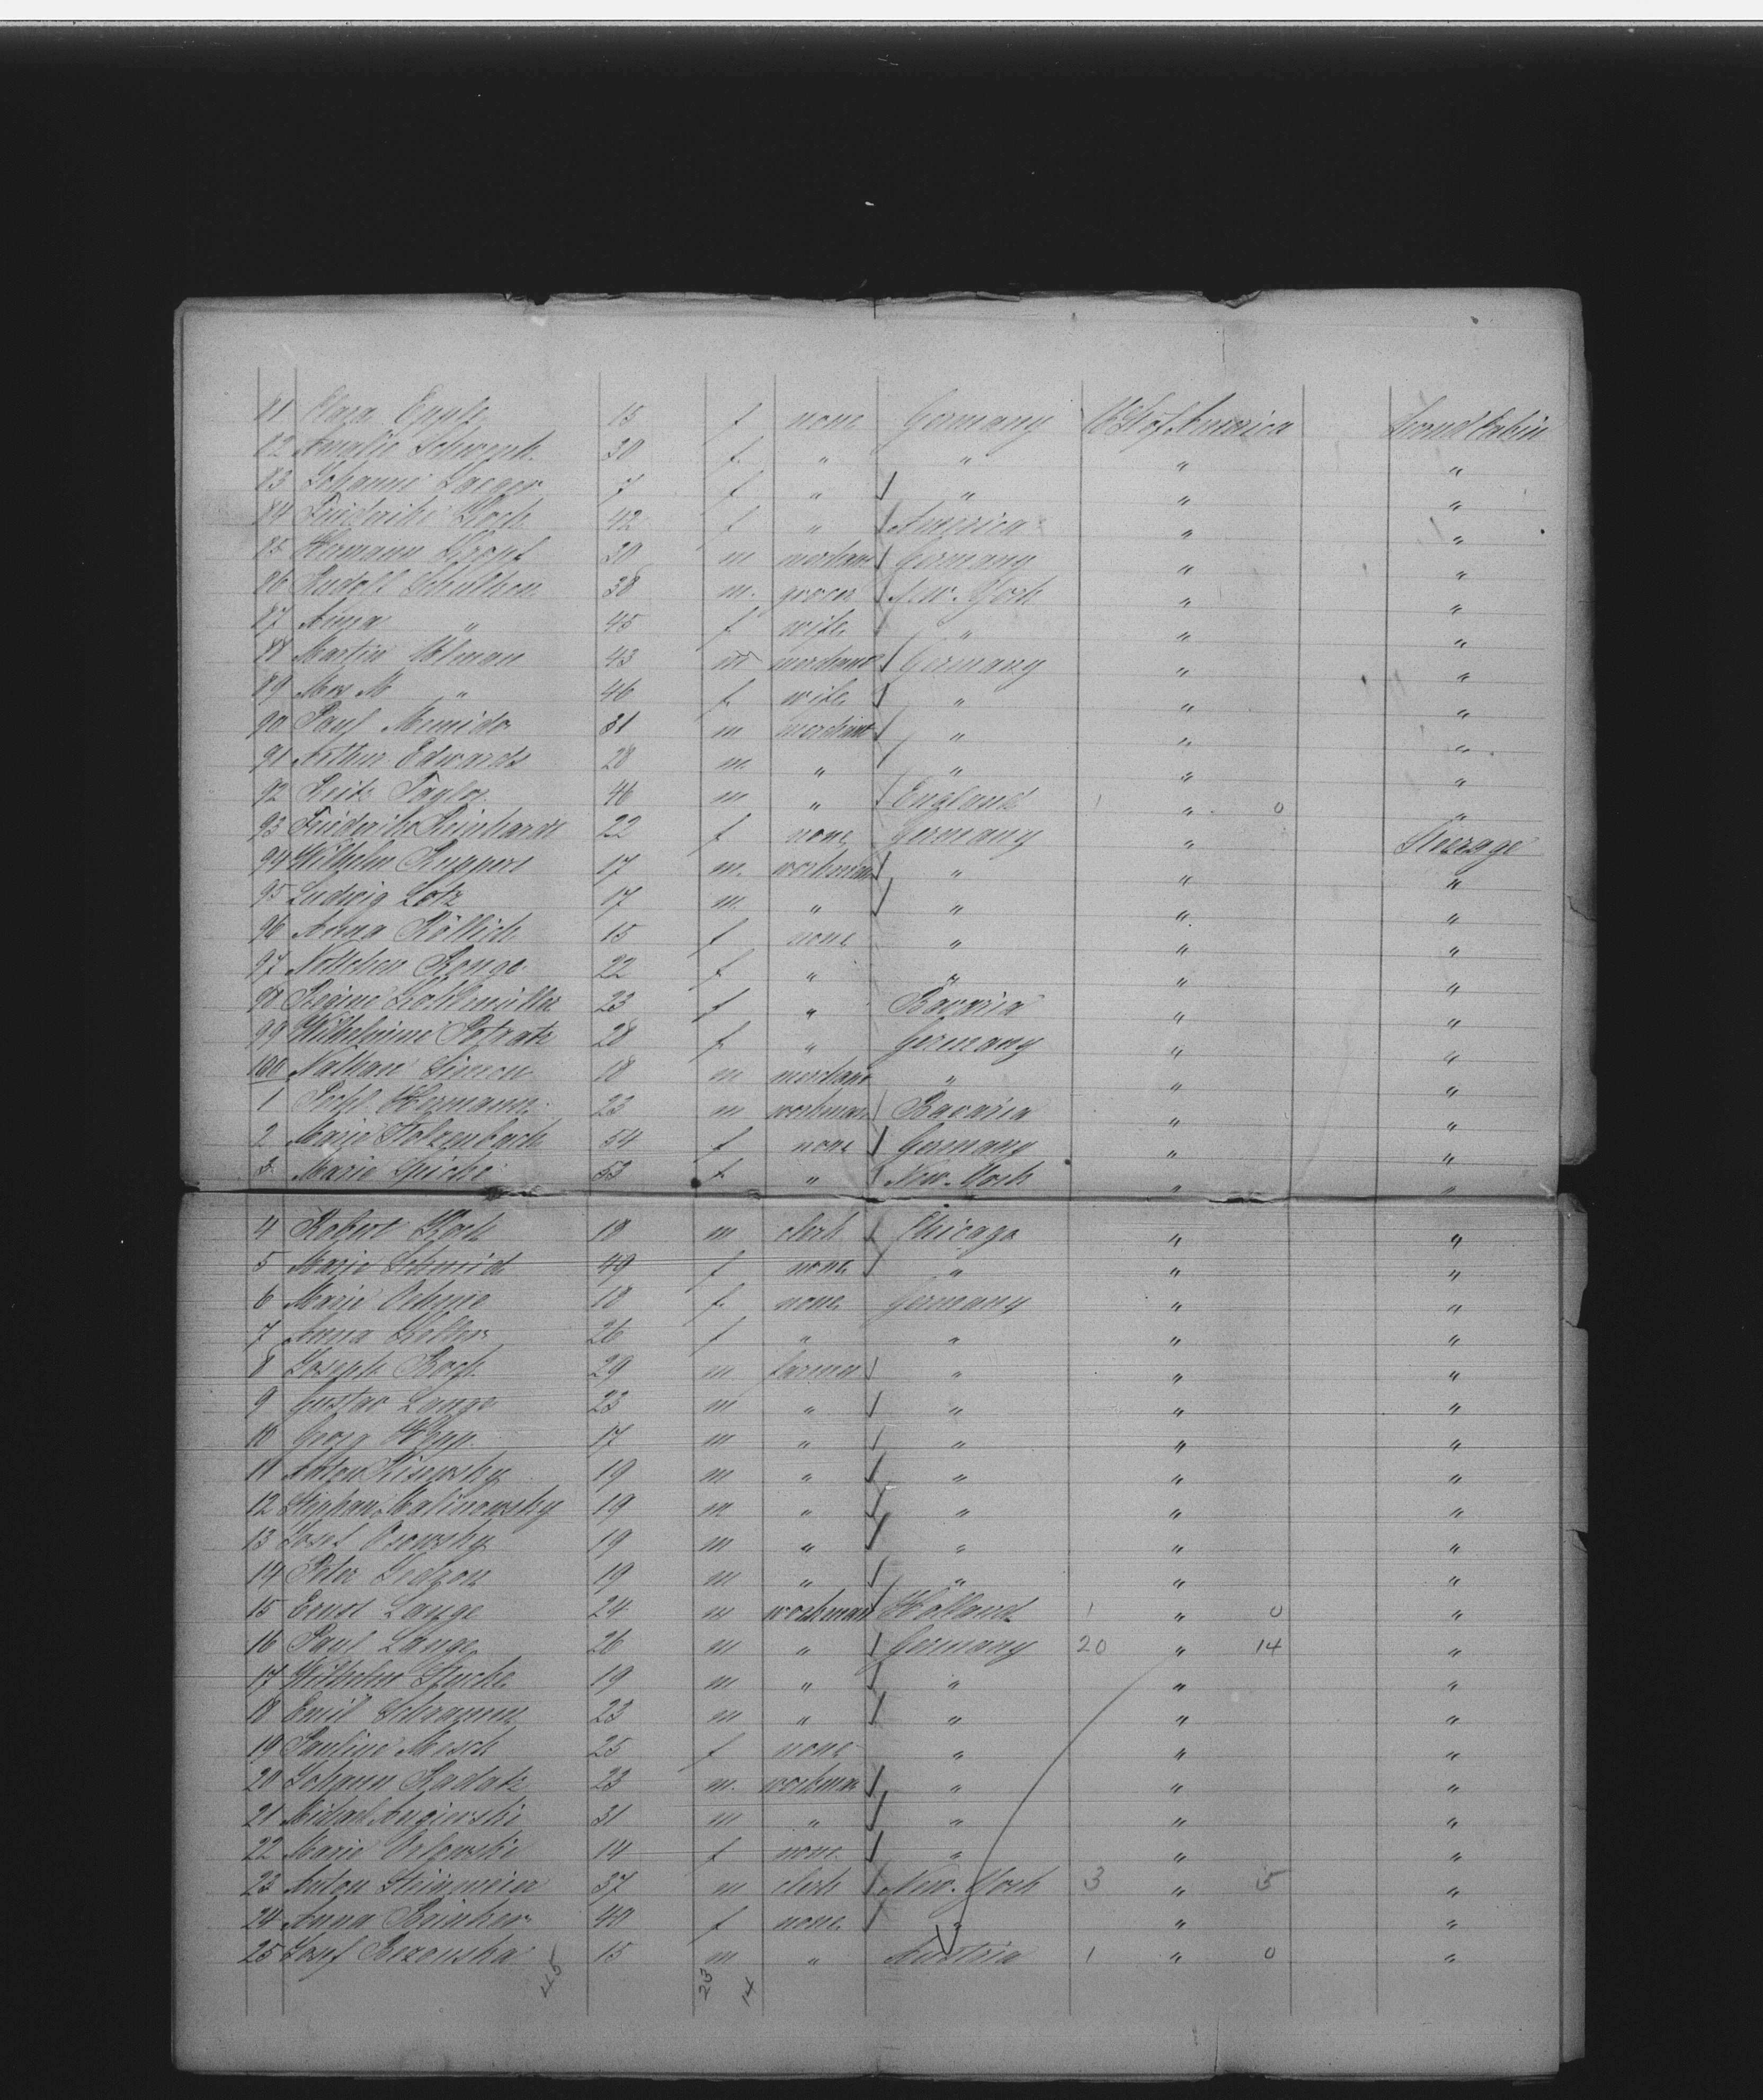 81 Clara Epple 15 f none Germany U St of America Second Cabin
82 Amalie Schwenk 30 f " " " "
83 Johanne Jaeger 7 f " " " "
84 Friederike Koch 42 f " America " "
85 Hermann 30 m merchant Germany " "
86 Rudolf Schulthen 38 m. grocer New-York " "
87 Anna " 45 f wife " " "
88 Martin Ulman 43 m merchant Germany " "
89 Mrs M " 46 f wife " " "
90 Paul 31 m merchant " " "
91 Arthur Edwards 28 m " " " "
92 Taylor 46 m " England 1 " 0 "
93 Friederike Reinhardt 22 f none Germany " Steerage
94 Wilhelm Ruppert 17 m. workman " " "
95 Ludwig Lotz 17 m " " " "
96 Anna Röllich 15 f none " " "
97 Nettchen 22 f " " " "
98 Regine Kohlmüller 23 f " Bavaria " "
99 Wilhelmine Potratz 28 f " Germany " "
100 Nathan Simon 18 m merchant " " "
1 Hermann 23 m workman Bavaria " "
2 Marie Stolzenbach 54 f none Germany " "
3 Marie 53 f " New-York " "
4 Robert Koch 18 m clerk Chicago " "
5 Marie Schmid 49 f none " " "
6 Marie Oehme 18 f none Germany " "
7 Anna 26 f " " " "
8 Joseph 29 m farmer " " "
9 Gustav Lange 23 m " " " "
10 Georg 17 m " " " "
11 Anton 19 m " " " "
12 Stephan Malinowsky 19 m " " " "
13 Josef Osowsky 19 m " " " "
14 Peter 19 m " " " "
15 Ernst Lange 24 m workman Holland 1 " 0 "
16 Paul Lange 26 m " Germany 20 " 14 "
17 Wilhelm 19 m " " " "
18 Emil Schramm 23 m " " " "
19 Pauline Mesch 25 f none " " "
20 Johann Radatz 23 m. workman " " "
21 Michael 31 m " " " "
22 Marie Orlowski 14 f none " " "
23 Anton Steinmeier 37 m clerk New-York 3 " 5 "
24 Anna 40 f none " " "
25 Josef 15 m " Austria 1 " 0 "
45 23 14